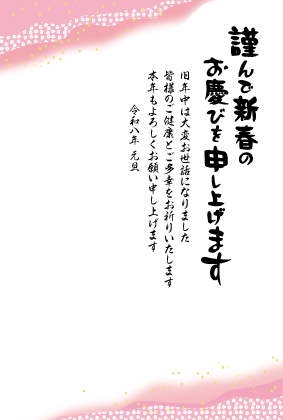 謹んで新春の
お慶びを申し上げます
旧年中は大変お世話になりました
皆様のご健康とご多幸をお祈りいたします
本年もよろしくお願い申し上げます
令和八年 元旦